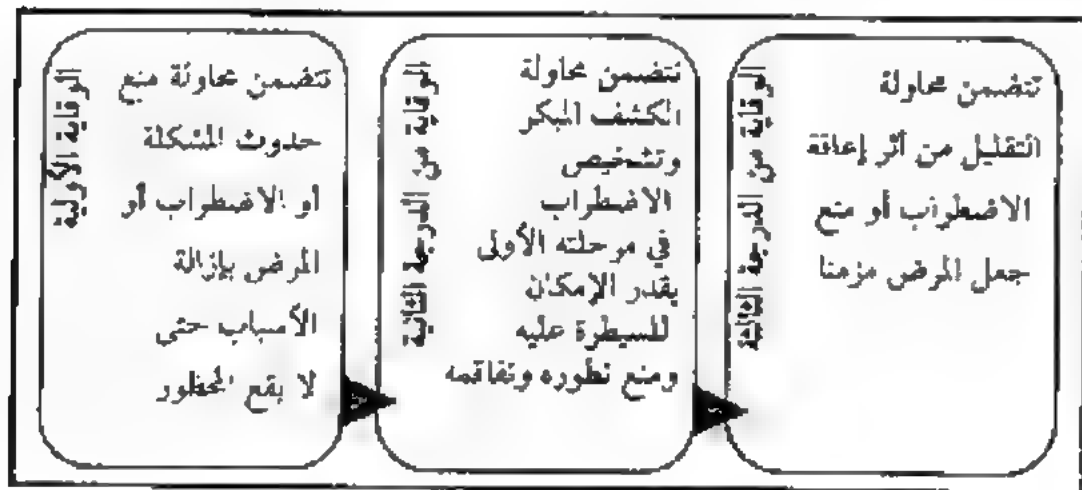 الوقاية الأولية
تتضمن محاولة منع
حدوث المشكلة
أو الاضطراب أو
المرض بإزالة
الأسباب حتى
لا يقع المحظور
الوقاية من الدرجة الثانية
تتضمن محاولة
الكشف المبكر
وتشخيص
الاضطراب
في مرحلته الأولى
بقدر الإمكان
للسيطرة عليه
ومنع تطوره وتفاقمه
الوقاية من الدرجة الثالثة
تتضمن محاولة
التقليل من أثر إعاقة
الاضطراب أو منع
جعل المرض مزمنا